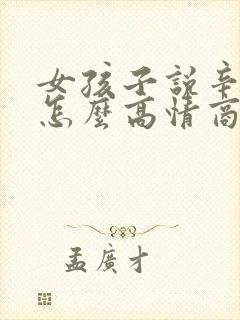 女孩子說辛
怎麼高情商
孟廣才